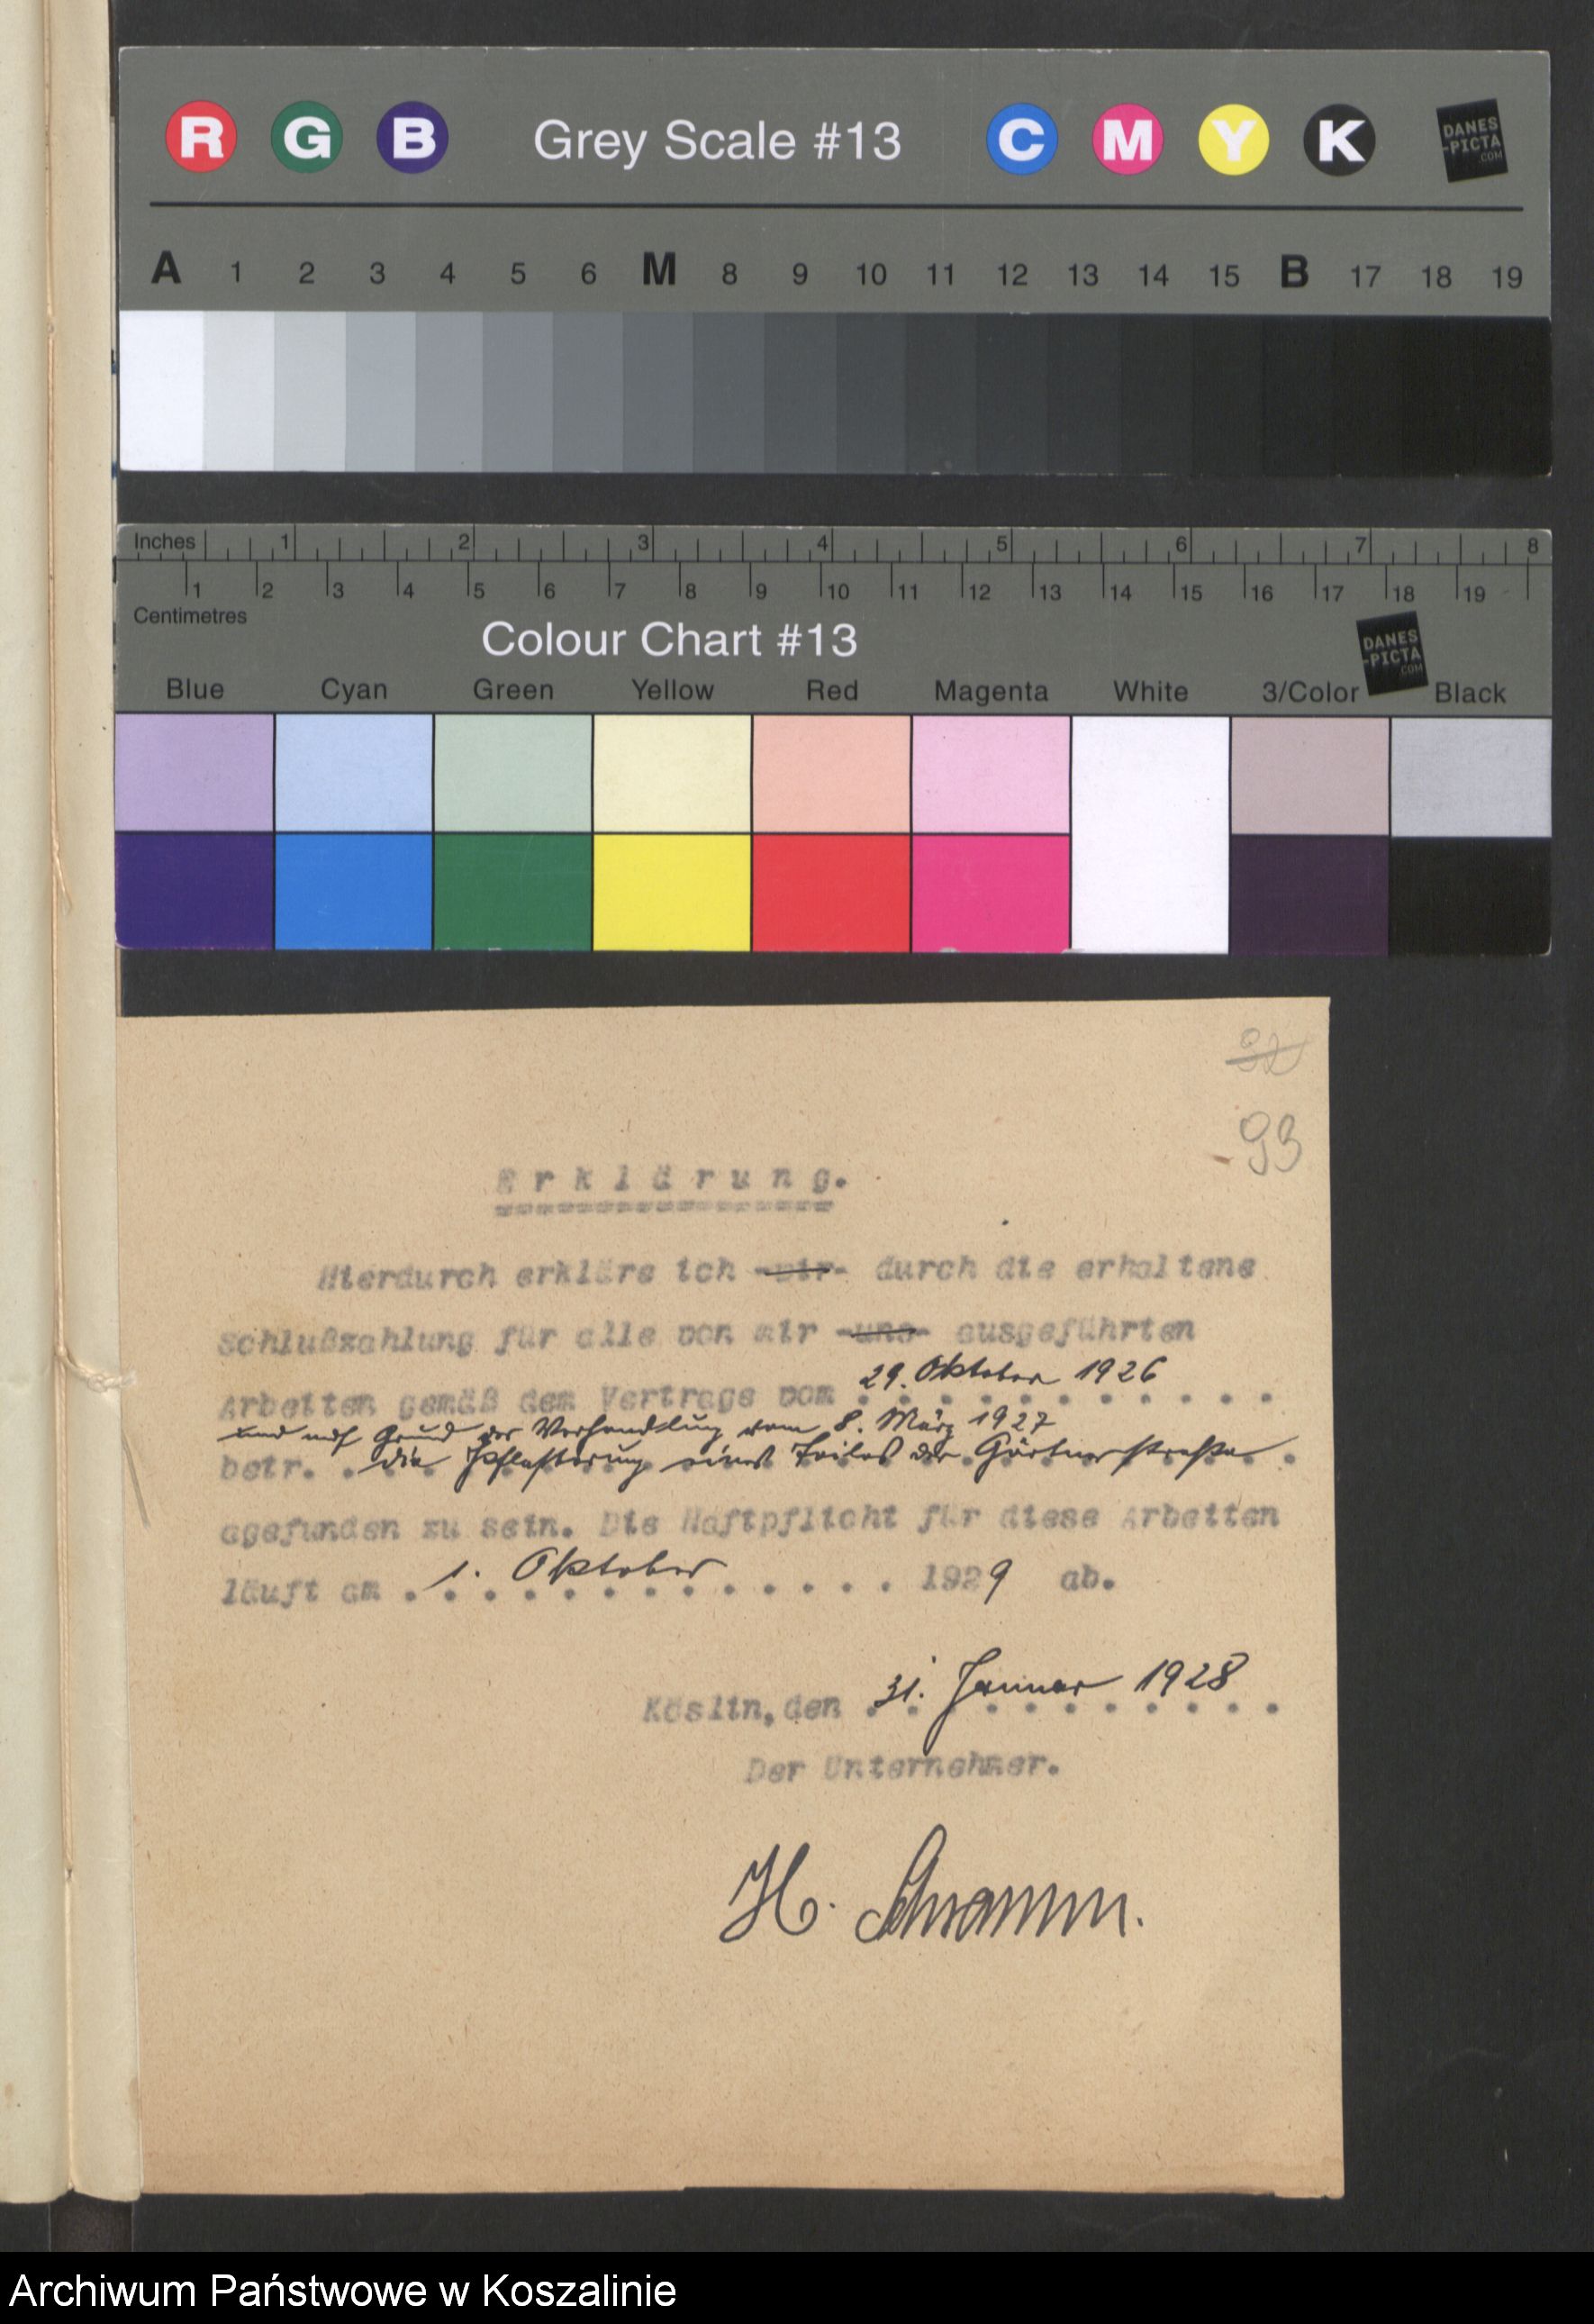 R G B Grey Scale #13 C M Y K DANES-PICTA.COM
A 1 2 3 4 5 6 M 8 9 10 11 12 13 14 15 B 17 18 19
Inches 1 2 3 4 5 6 7 8
1 2 3 4 5 6 7 8 9 10 11 12 13 14 15 16 17 18 19
Centimetres
Colour Chart #13 DANES-PICTA.COM
Blue Cyan Green Yellow Red Magenta White 3/Color Black
93
Erklärung.
Hierdurch erkläre ich -wir- durch die erhaltene
Schlußzahlung für alle von mir -uns- ausgeführten
Arbeiten gemäß dem Vertrage vom 29. Oktober 1926
und auf Grund der Verhandlung vom 8. März 1927
betr. die Pflasterung eines Teiles der Gärtnerstraße
agefunden zu sein. Die Haftpflicht für diese Arbeiten
läuft am 1. Oktober 1929 ab.
Köslin, den 31. Januar 1928
Der Unternehmer.
H. Schramm.
Archiwum Państwowe w Koszalinie